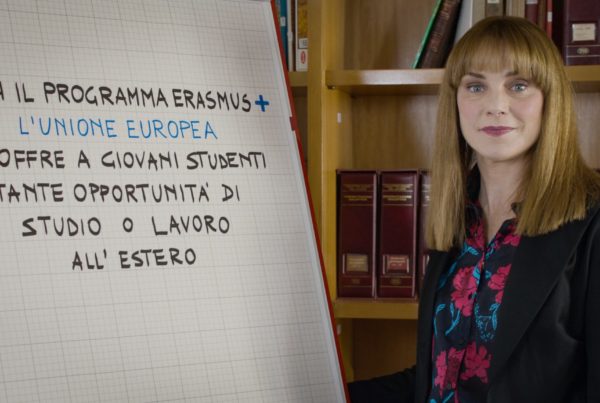 IL PROGRAMMA ERASMUS+
L'UNIONE EUROPEA
OFFRE A GIOVANI STUDENTI
TANTE OPPORTUNITA' DI
STUDIO O LAVORO
ALL' ESTERO